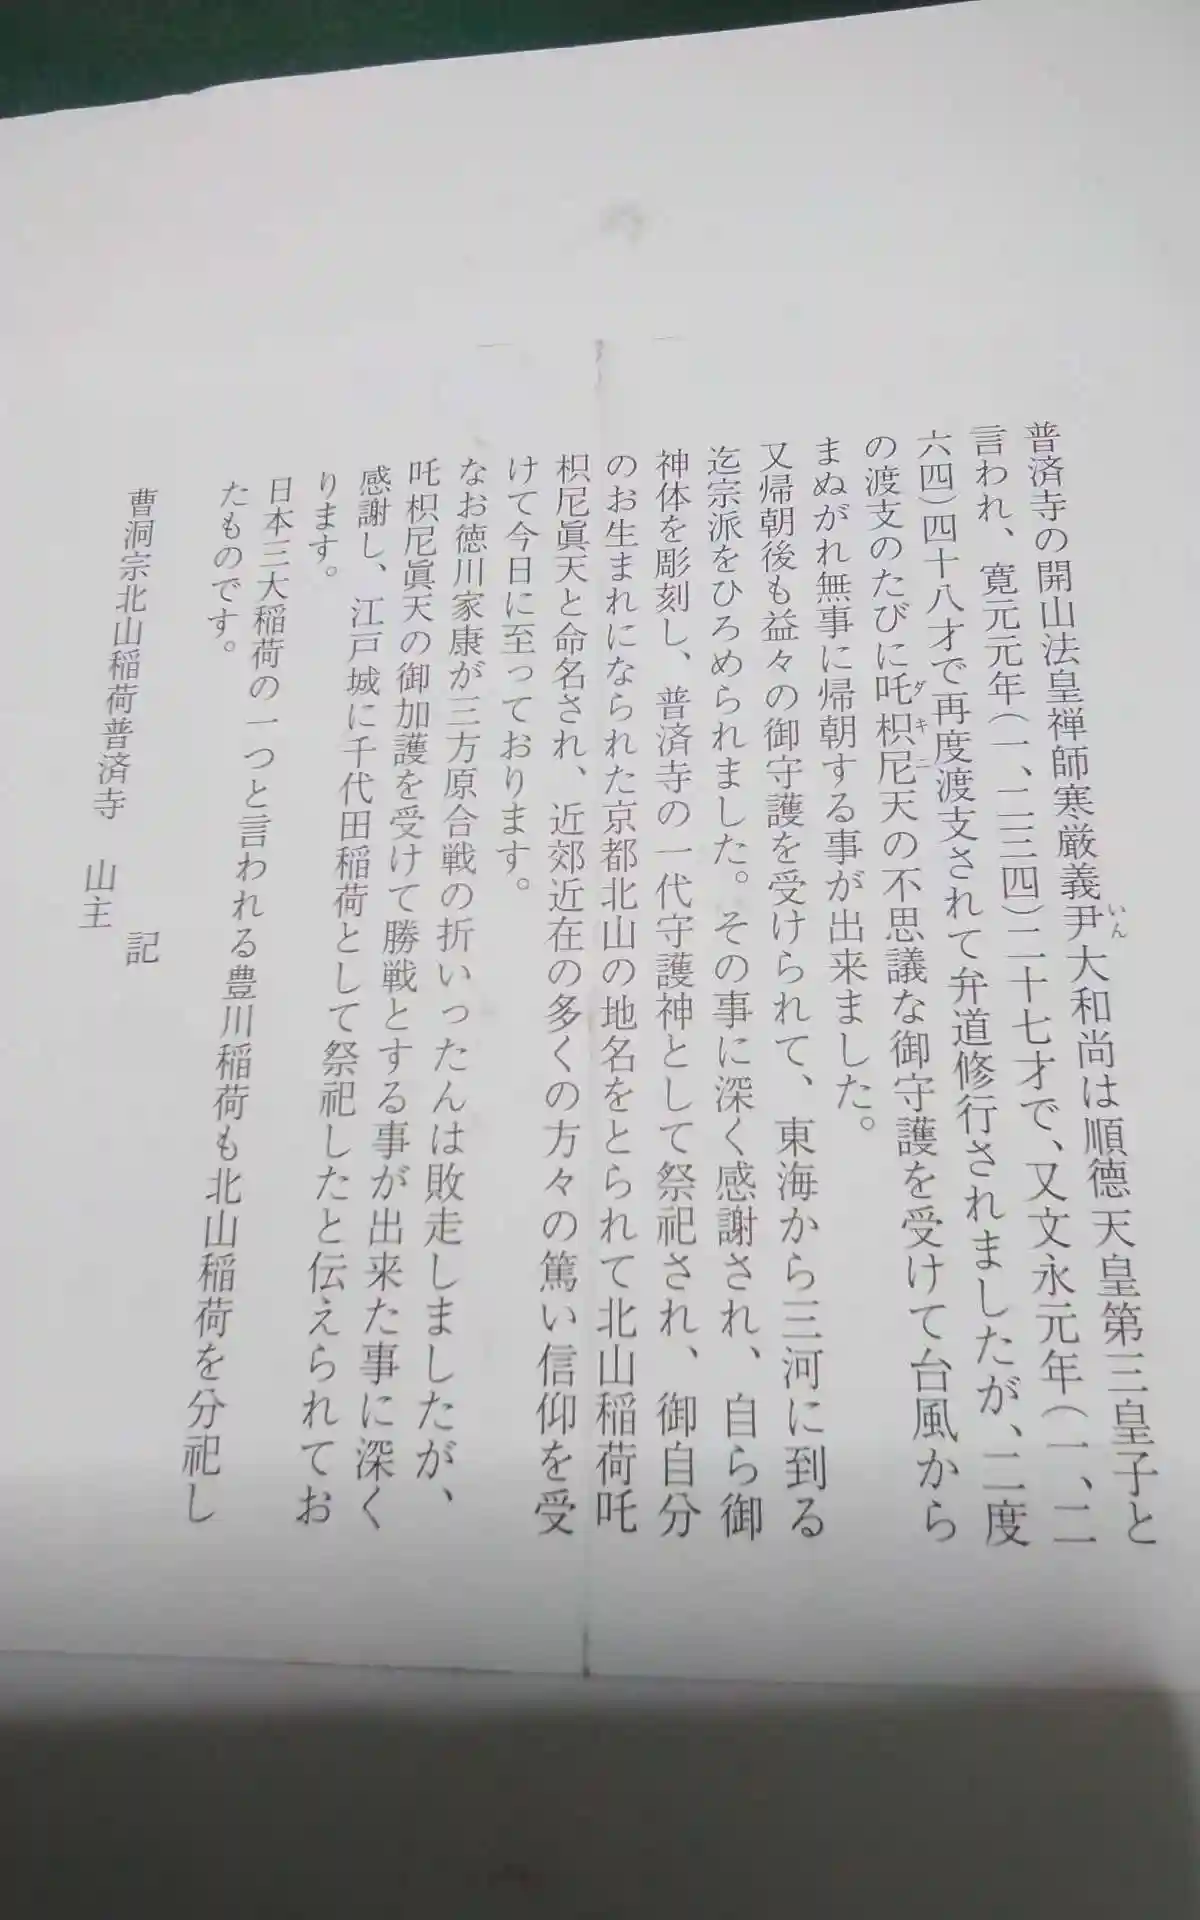 普済寺の開山法皇禅師寒厳義尹大和尚は順徳天皇第三皇子と
いん
言われ、寛元元年（一、二三四）二十七才で、又文永元年（一、二
六四）四十八才で再度渡支されて弁道修行されましたが、二度
の渡支のたびに吒枳尼天の不思議な御守護を受けて台風から
ダキニ
まぬがれ無事に帰朝する事が出来ました。
又帰朝後も益々の御守護を受けられて、東海から三河に到る
迄宗派をひろめられました。その事に深く感謝され、自ら御
神体を彫刻し、普済寺の一代守護神として祭祀され、御自分
のお生まれになられた京都北山の地名をとられて北山稲荷吒
枳尼眞天と命名され、近郊近在の多くの方々の篤い信仰を受
けて今日に至っております。
なお徳川家康が三方原合戦の折いったんは敗走しましたが、
吒枳尼眞天の御加護を受けて勝戦とする事が出来た事に深く
感謝し、江戸城に千代田稲荷として祭祀したと伝えられてお
ります。
日本三大稲荷の一つと言われる豊川稲荷も北山稲荷を分祀し
たものです。
記
曹洞宗北山稲荷普済寺　山主